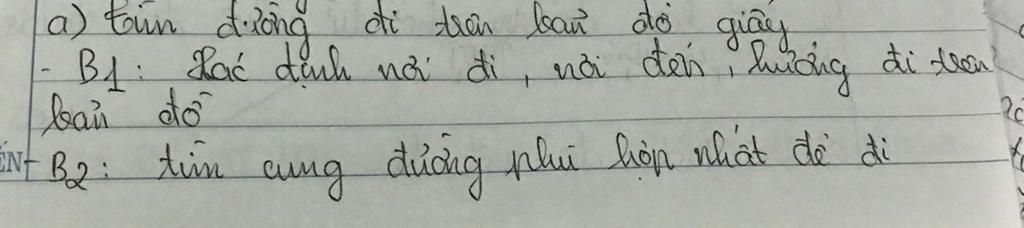 a) tìm đường đi trên bản đồ giấy
- B1: Xác định nơi đi, nơi đến, hướng đi trên
bản đồ
- B2: tìm cung đường phù hợp nhất để đi